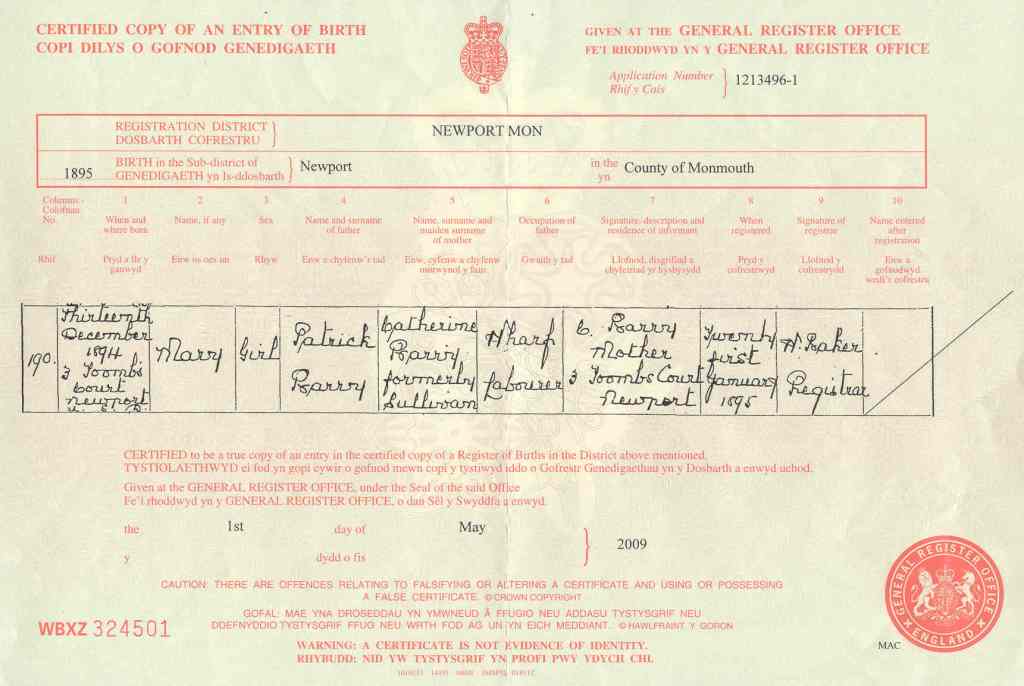 CERTIFIED COPY OF AN ENTRY OF BIRTH
COPI DILYS O GOFNOD GENEDIGAETH
GIVEN AT THE GENERAL REGISTER OFFICE
FE'I RHODDWYD YN Y GENERAL REGISTER OFFICE
Application Number
Rhif y Cais
1213496-1
REGISTRATION DISTRICT
DOSBARTH COFRESTRU
NEWPORT MON
1895
BIRTH in the Sub-district of
GENEDIGAETH yn Is-ddosbarth
Newport
in the
yn
County of Monmouth
Columns:-
Colofnau
No.
1 2 3 4 5 6 7 8 9 10
When and
where born
Name, if any
Sex
Name and surname
of father
Name, surname and
maiden surname
of mother
Occupation of
father
Signature, description and
residence of informant
When
registered
Signature of
registrar
Name entered
after
registration
Rhif
Pryd a lle y
ganwyd
Enw os oes un
Rhyw
Enw a chyfenw'r tad
Enw, cyfenw a chyfenw
morwynol y fam
Gwaith y tad
Llofnod, disgrifiad a
chyfeiriad yr hysbysydd
Pryd y
cofrestrwyd
Llofnod y
cofrestrydd
Enw a
gofnodwyd
wedi'r cofrestru
190.
Thirteenth
December
1894
3 Toombs
Court
Newport
Mary
Girl
Patrick
Barry
Catherine
Barry
formerly
Sullivan
Wharf
Labourer
C. Barry
Mother
3 Toombs Court
Newport
Twenty
first
January
1895
H. Baker
Registrar
CERTIFIED to be a true copy of an entry in the certified copy of a Register of Births in the District above mentioned.
TYSTIOLAETHWYD ei fod yn gopi cywir o gofnod mewn copi y tystiwyd iddo o Gofrestr Genedigaethau yn y Dosbarth a enwyd uchod.
Given at the GENERAL REGISTER OFFICE, under the Seal of the said Office
Fe'i rhoddwyd yn y GENERAL REGISTER OFFICE, o dan Sêl y Swyddfa a enwyd.
the 1st day of May
2009
y dydd o fis
CAUTION: THERE ARE OFFENCES RELATING TO FALSIFYING OR ALTERING A CERTIFICATE AND USING OR POSSESSING
A FALSE CERTIFICATE. © CROWN COPYRIGHT
GOFAL: MAE YNA DROSEDDAU YN YMWNEUD Â FFUGIO NEU ADDASU TYSTYSGRIF NEU
DDEFNYDDIO TYSTYSGRIF FFUG NEU WRTH FOD AG UN YN EICH MEDDIANT. © HAWLFRAINT Y GORON
WARNING: A CERTIFICATE IS NOT EVIDENCE OF IDENTITY.
RHYBUDD: NID YW TYSTYSGRIF YN PROFI PWY YDYCH CHI.
WBXZ 324501
GENERAL REGISTER OFFICE
ENGLAND
MAC